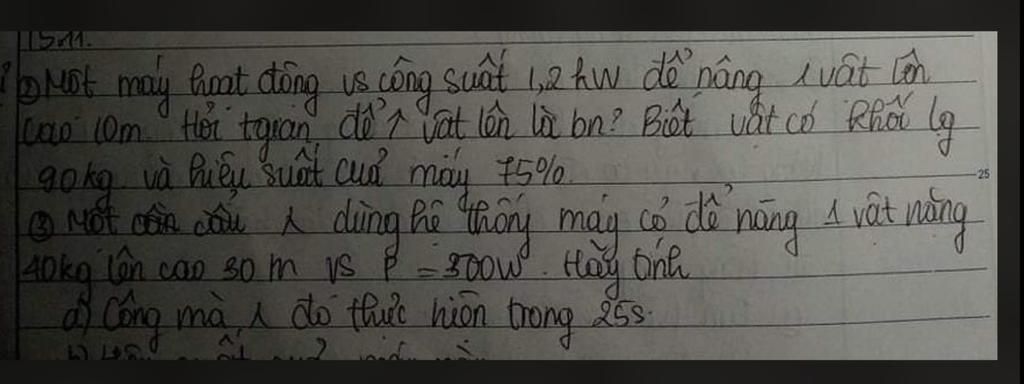 15.11.
② Một máy hoạt động vs công suất 1,2kW để nâng 1 vật lên
cao 10m. Hỏi tgian để ↑ vật lên là bn? Biết vật có khối lg
90kg và hiệu suất của máy 75%.
③ Một cần cẩu λ dùng hệ thống máy cơ để nâng 1 vật nặng
40kg lên cao 30 m vs P = 300W. Hãy tính
a) Công mà λ đó thực hiện trong 25s.
25